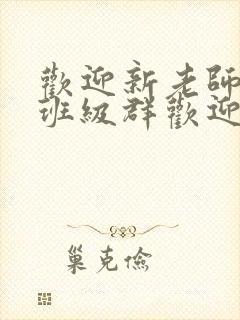 歡迎新老師
班級群歡迎
巢克儉